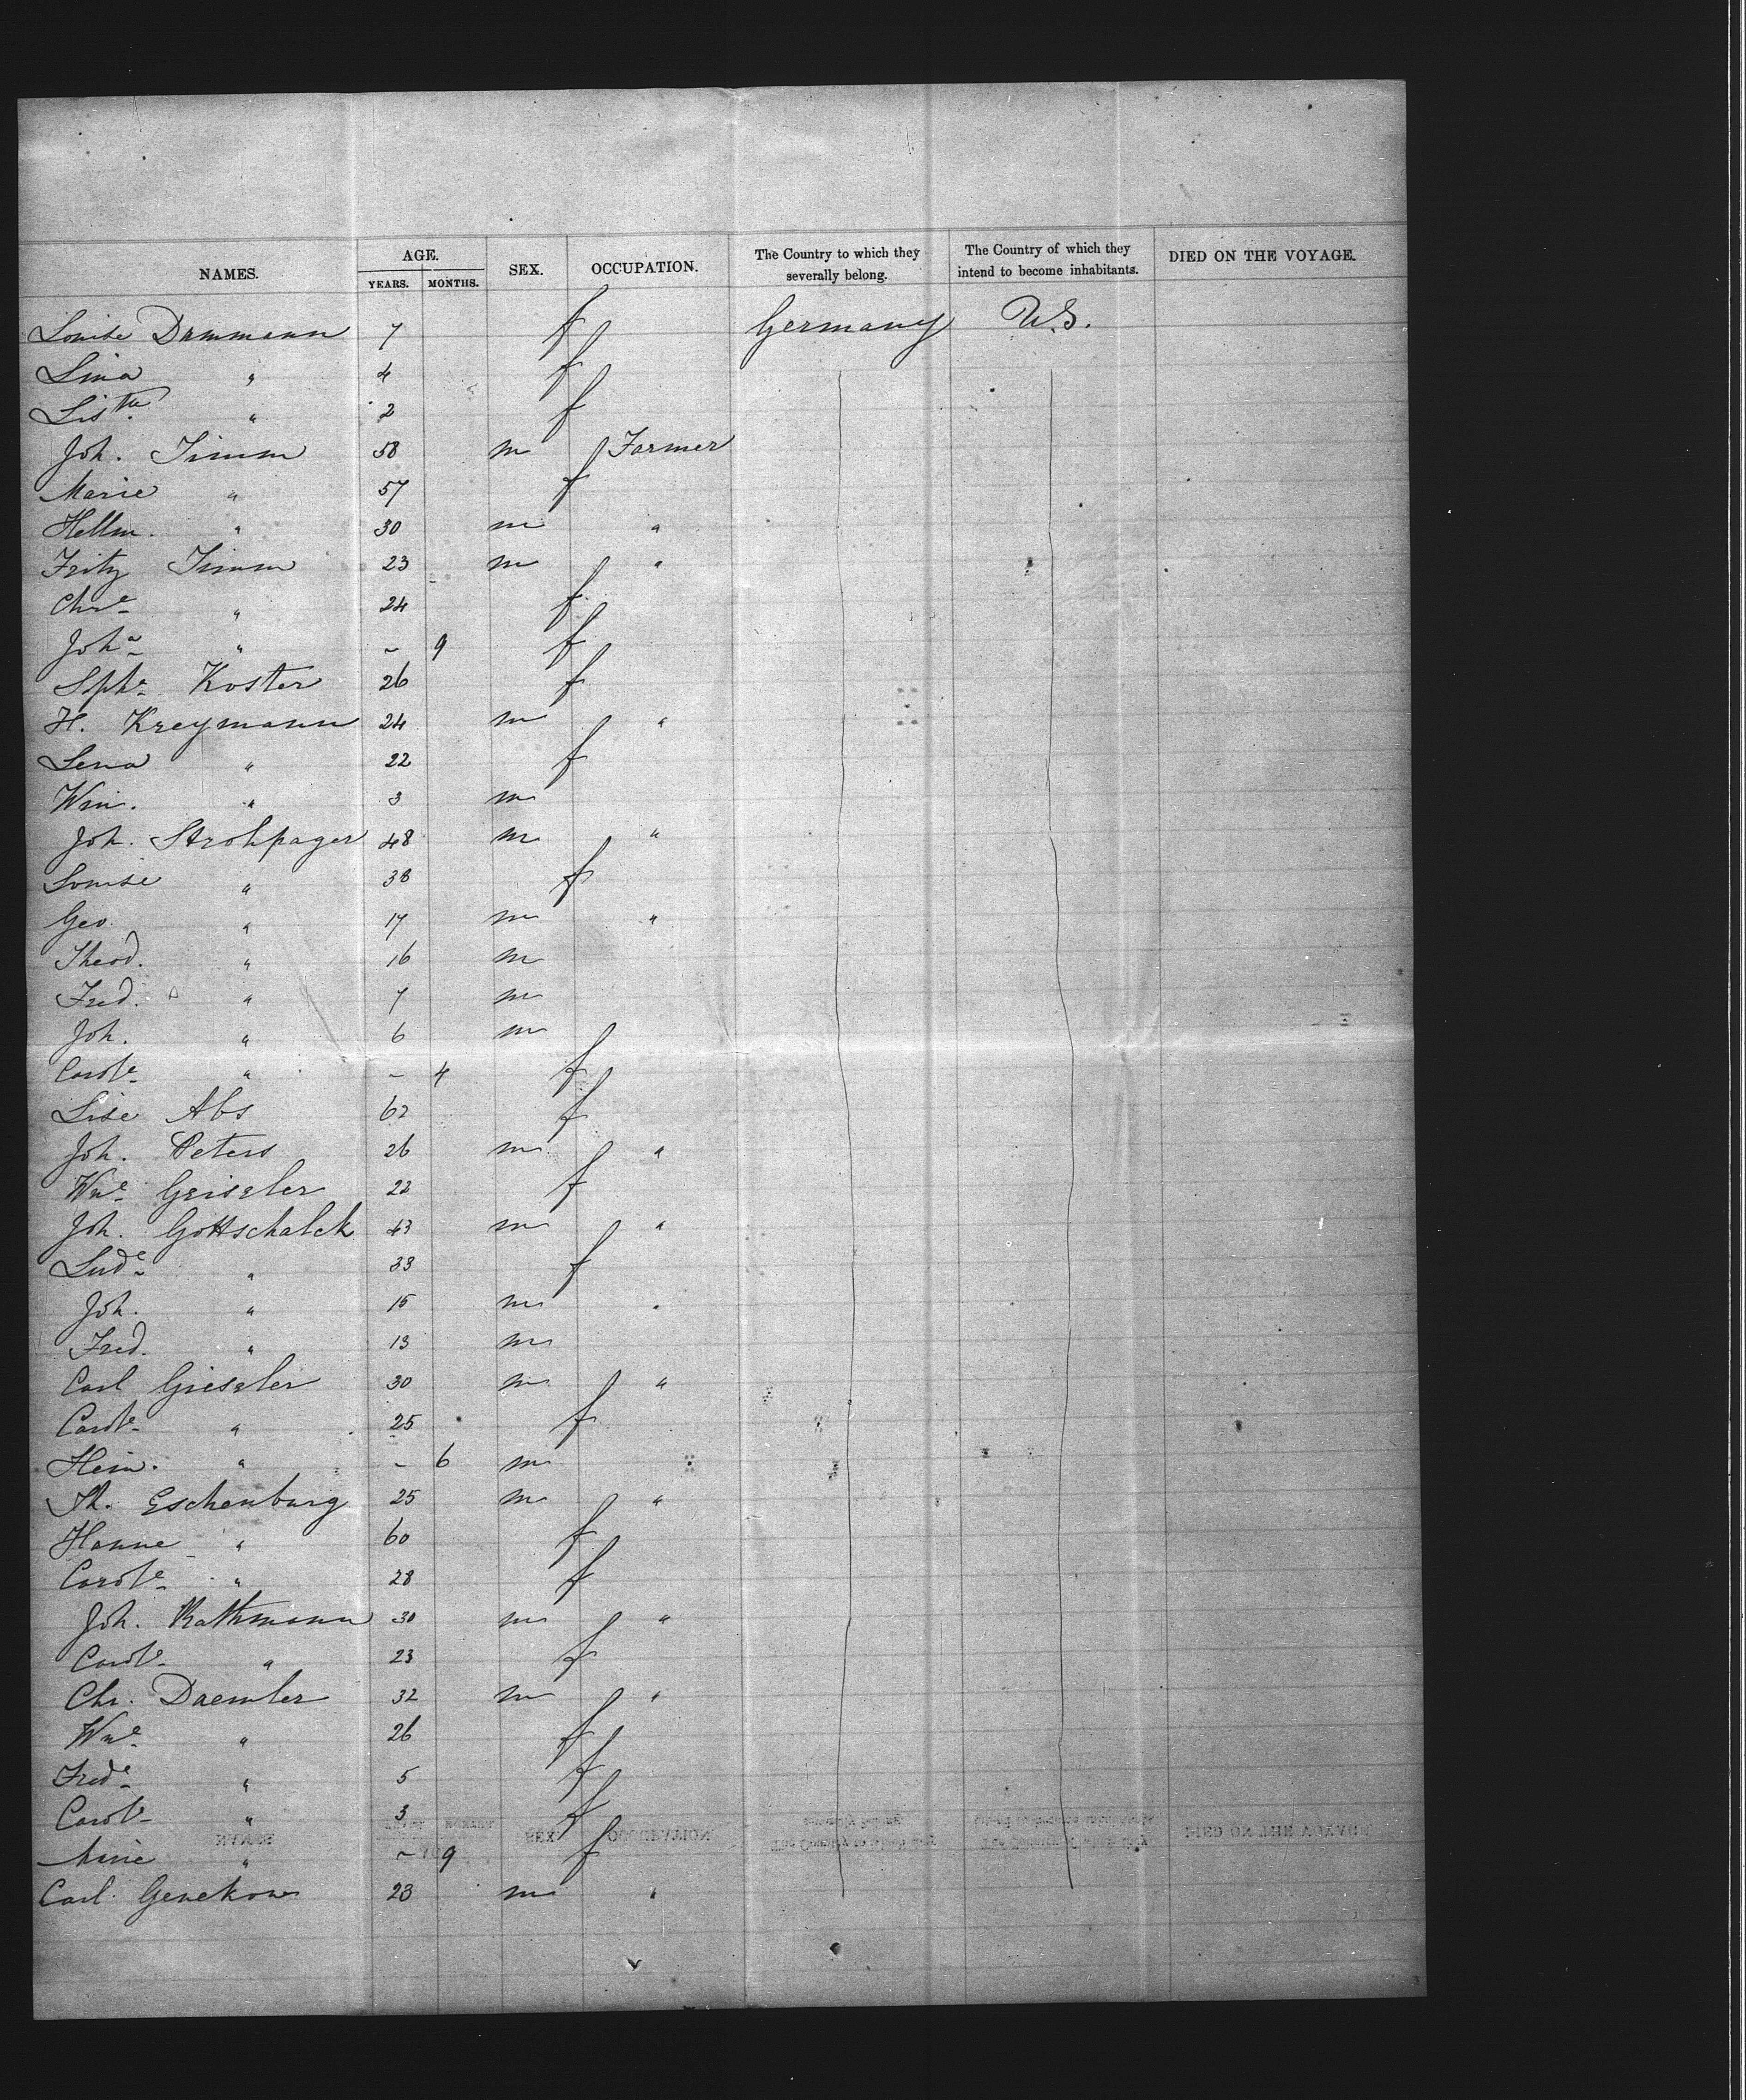 NAMES. AGE. YEARS. MONTHS. SEX. OCCUPATION. The Country to which they severally belong. The Country of which they intend to become inhabitants. DIED ON THE VOYAGE.
Louise Dammann 7 f Germany U.S.
Lina " 4 f
Lisтte " 2 f
Joh. Timm 58 m Farmer
Marie " 57 f
Hellm. " 30 m "
Fritz Timm 23 m "
Chre " 24 f
Joha " - 9 f
Sphe Koster 26 f
H. Kreymann 24 m "
Lena " 22 f
Wm. " 3 m
Joh. Strohpager 48 m "
Louise " 38 f
Geo. " 17 m "
Theod. " 16 m
Fred. " 7 m
Joh. " 6 m
Carole " - 4 f
Lise Abs 62 f
Joh. Peters 26 m "
Wme Geiseler 22 f
Joh. Gottschalck 43 m "
Lude " 33 f
Joh. " 15 m "
Fred. " 13 m
Carl Gieseler 30 m "
Carole " 25 f
Hein. " - 6 m
Th. Eschenburg 25 m "
Hanne " 60 f
Carole " 28 f
Joh. Rathmann 30 m "
Carole " 23 f
Chr. Daemler 32 m "
Wme " 26 f
Frede " 5 f
Carole " 3 f
Mine " - 9 f
Carl Genekow 23 m "